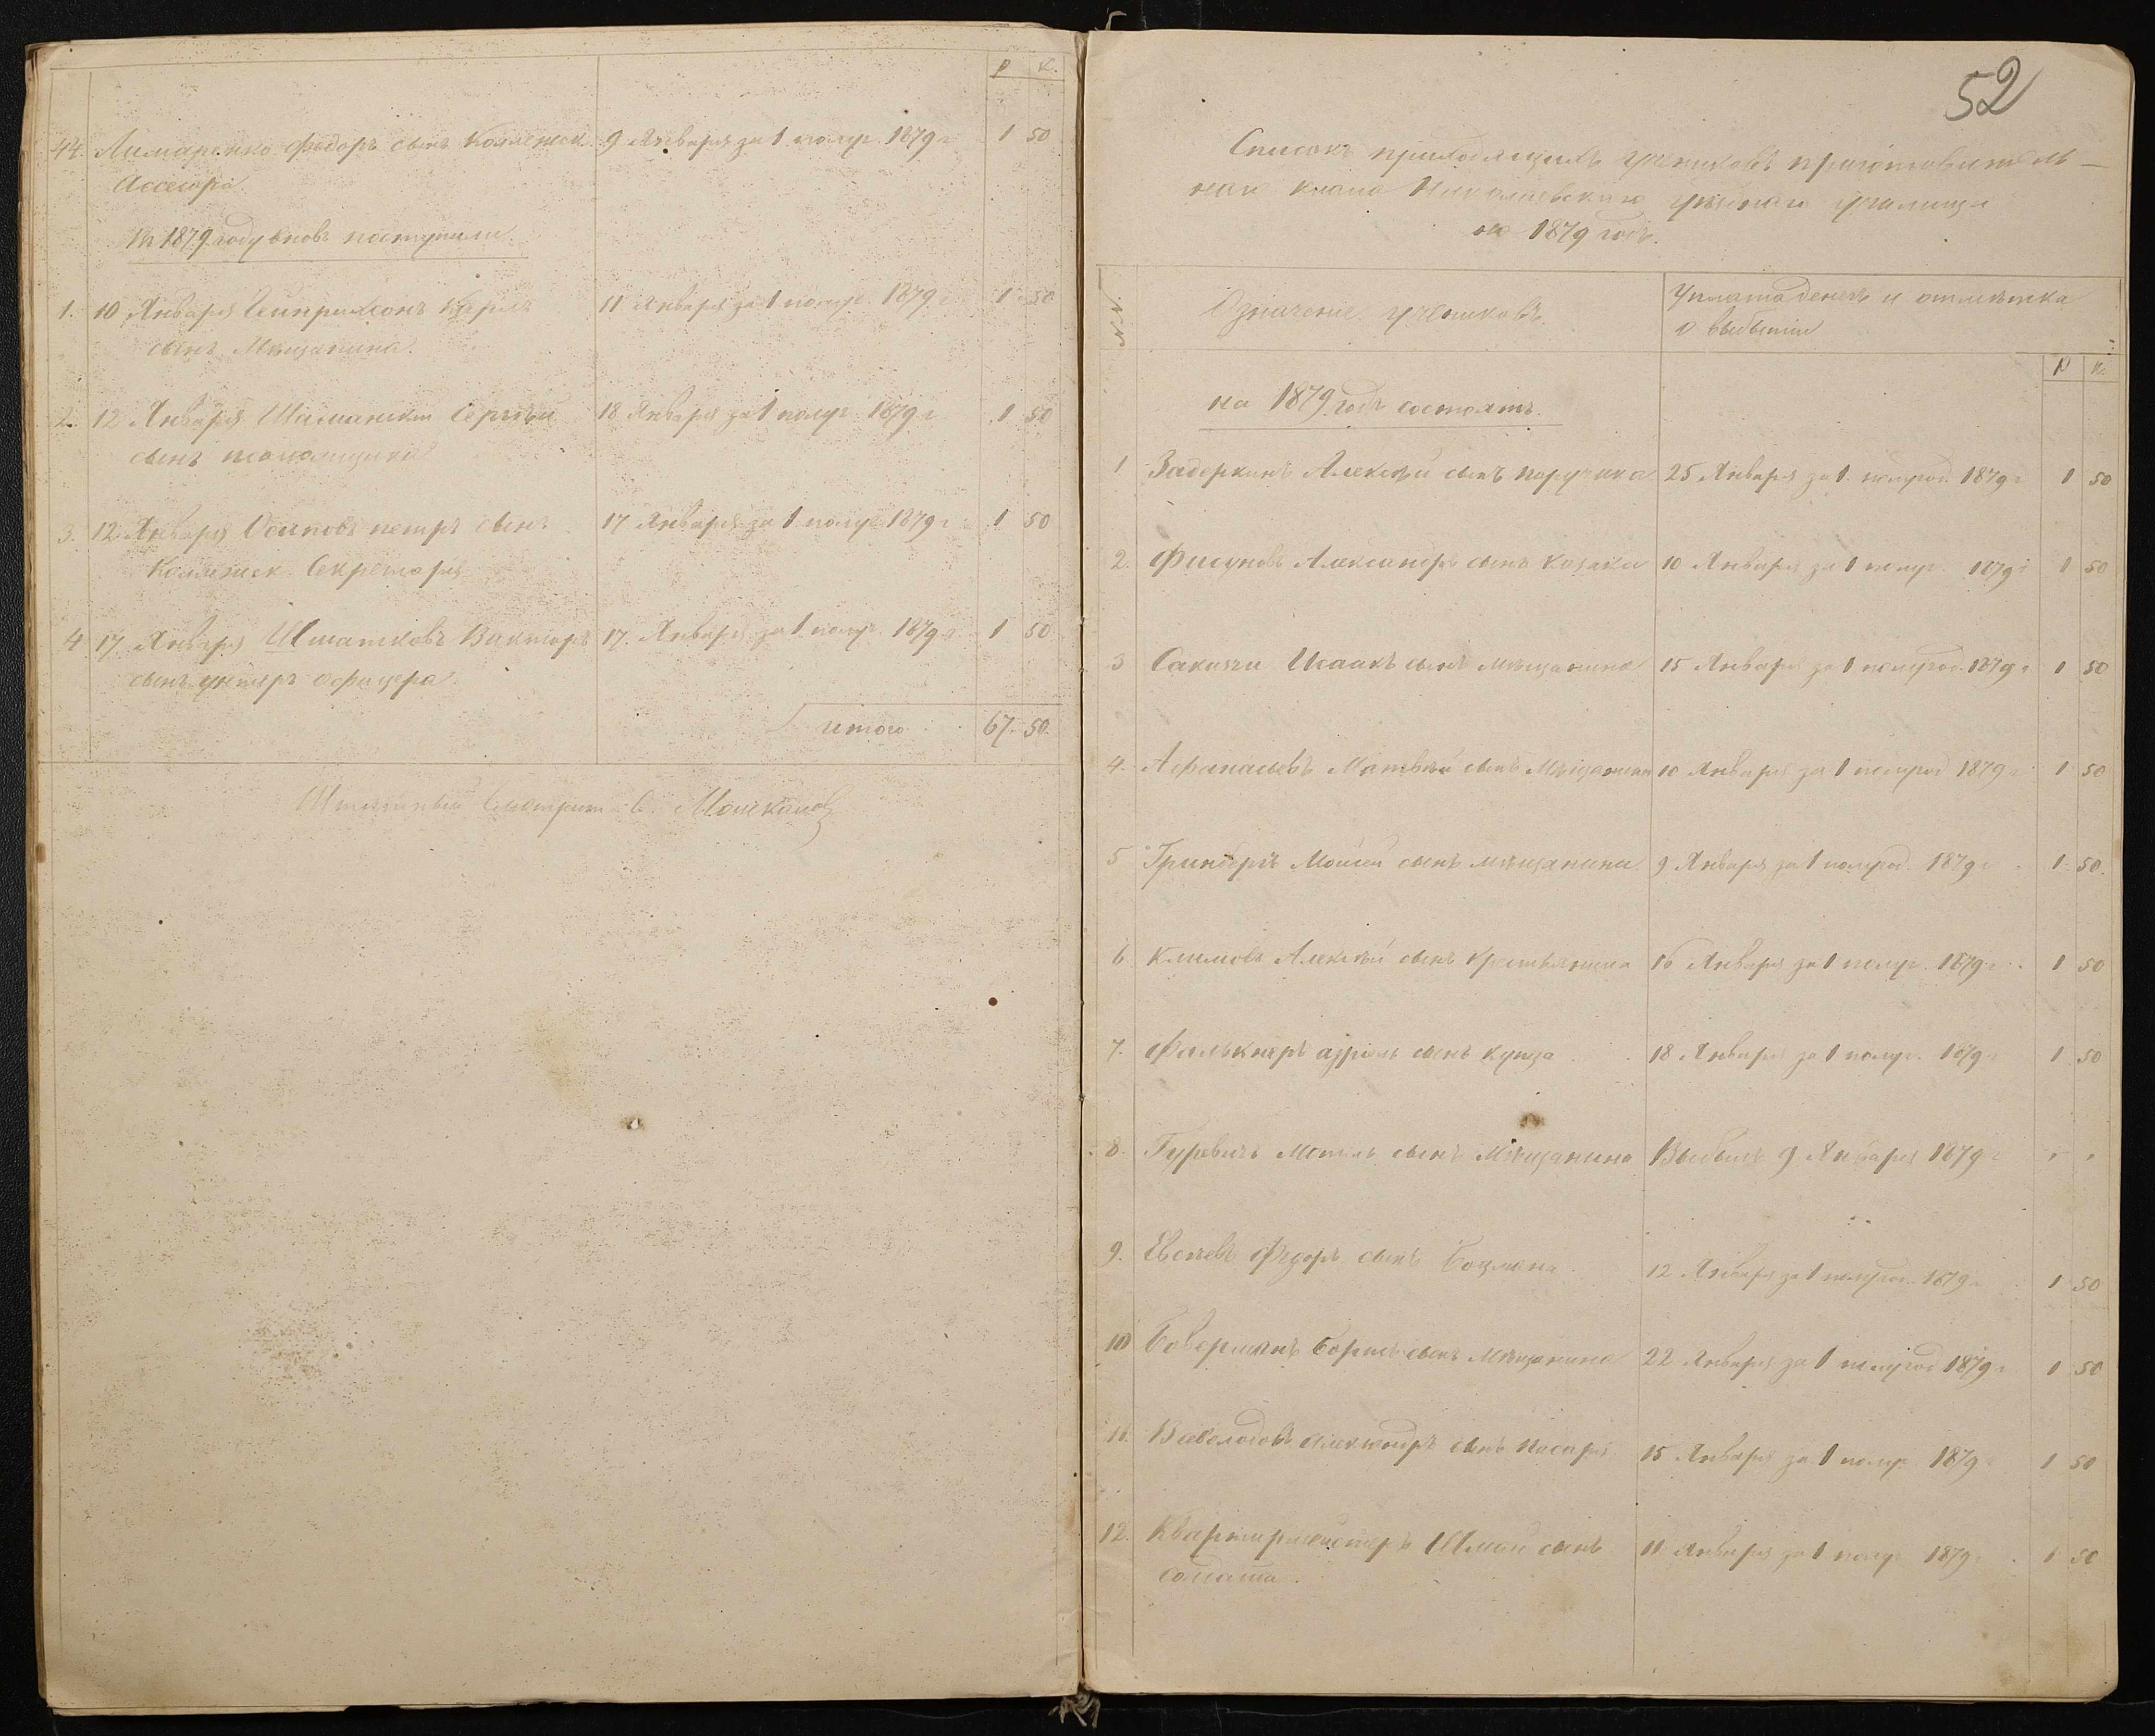 Р К.
44. Лимаренко Федоръ сынъ Коллежск. 9 Января за 1 полуг. 1879 г. 1 50
Ассесора.
въ 1879 году вновь поступили
1. 10 Января сынъ Мѣщанина. 11 Января за 1 полуг. 1879 г. 1 50
2. 12 Января Шиманскій Сергѣй 18 Января за 1 полуг. 1879 г 1 50
сынъ
3. 12 Января Осиповъ петръ сынъ 17 Января за 1 полуг. 1879 г 1 50
Коллежск. Секретаря
4 17 Января Шматковъ Викторъ 17. Января за 1 полуг. 1879 г. 1 50
сынъ унтеръ офицера.
итого 67 50.
Штатный Смотритель
52
Списокъ приходящихъ учениковъ приготовитель-
наго класса Николаевскаго уѣзднаго училища
на 1879 годъ.
№№ Означеніе учениковъ. Уплата денегъ и отмѣтка
о выбытіи
Р К.
на 1879 годъ состоятъ.
1 Задеркинъ Алексѣй сынъ поручика 25 Января за 1. полугод. 1879 г 1 50
2. Фисуновъ Александръ сынъ козака 10 Января за 1 полуг. 1879 г 1 50
3 Исаакъ сынъ мѣщанина 15 Января за 1 полугод. 1879 г 1 50
4. Афанасьевъ Матвѣй сынъ Мѣщанина 10 Января за 1 полугод 1879 г 1 50
5 Гринбергъ Мойсей сынъ мѣщанина 9 Января за 1 полугод. 1879 г 1. 50.
6 Климовъ Алексѣй сынъ Крестьянина 16 Января за 1 полуг. 1879 г. 1 50
7. Фалькнеръ азріель сынъ купца 18 Января за 1 полуг. 1879 г 1 50
8. Гуревичъ Мотель сынъ Мѣщанина Выбылъ 9 Января 1879 г " "
9. Евсѣевъ Федоръ сынъ Боцмана. 12 Января за 1 полугод. 1879 г. 1 50
10 Боверманъ Борисъ сынъ Мѣщанина 22 Января за 1 полугод 1879 г. 1 50
11. Всеволодовъ александръ сынъ писаря 15 Января за 1 полуг 1879 г 1 50
12. Квартирмейстеръ Шмай сынъ 11 Января за 1 полуг 1879 г. 1 50
Солдата.